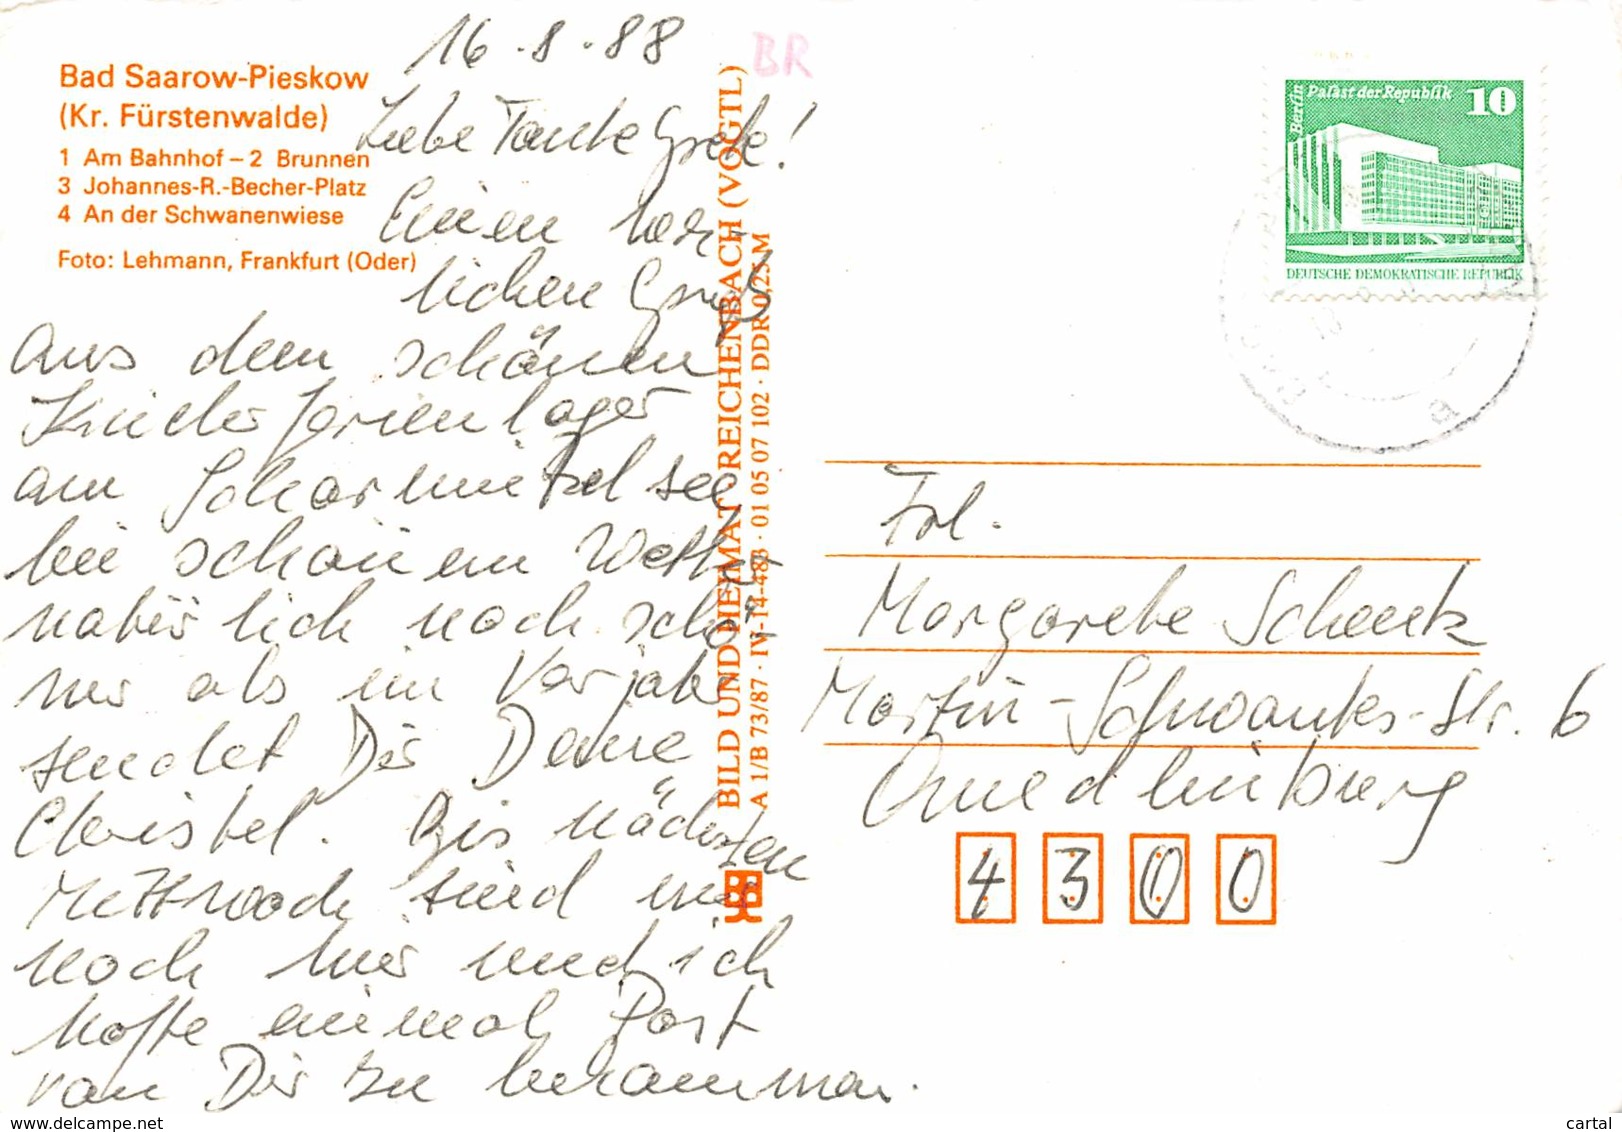 Bad Saarow-Pieskow
(Kr. Fürstenwalde)
1 Am Bahnhof – 2 Brunnen
3 Johannes-R.-Becher-Platz
4 An der Schwanenwiese
Foto: Lehmann, Frankfurt (Oder)
16.8.88
Liebe Tante Grete!
Einen herz-
lichen Gruß
aus dem schönen
Kinderferienlager
am Scharmützelsee
bei schönem Wetter
natürlich noch schö-
ner als im Vorjahr
sendet Dir Deine
Christel. Bis nächsten
Mittwoch sind wir
noch hier und ich
hoffe einmal Post
von Dir zu bekommen.
BILD UND HEIMAT REICHENBACH (VOGTL)
A 1/B 73/87 · IV-14-483 · 01 05 07 102 · DDR 0,25 M
BR
Berlin
Palast der Republik 10
DEUTSCHE DEMOKRATISCHE REPUBLIK
Frl.
Margarete Schenk
Martin-Schwantes-Str. 6
Quedlinburg
4300
www.delcampe.net
cartal